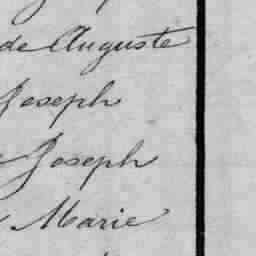 de Auguste
Joseph
Joseph
Marie